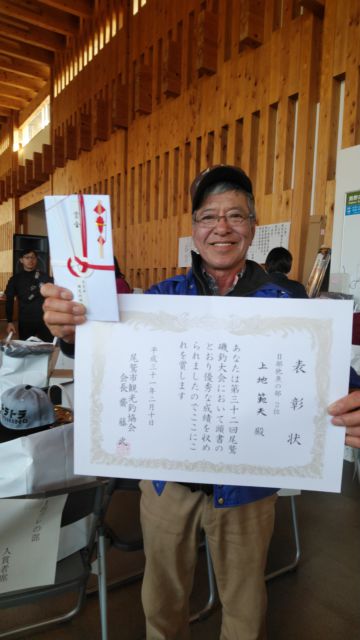 表彰状
上地範夫 殿
あなたは第三十二回尾鷲
磯釣大会において頭書の
とおり優秀な成績を収め
られましたのでここにこ
れを賞します
平成三十一年二月十日
尾鷲市観光釣協会
会長 齋藤 武
賞金
の部
入賞者席